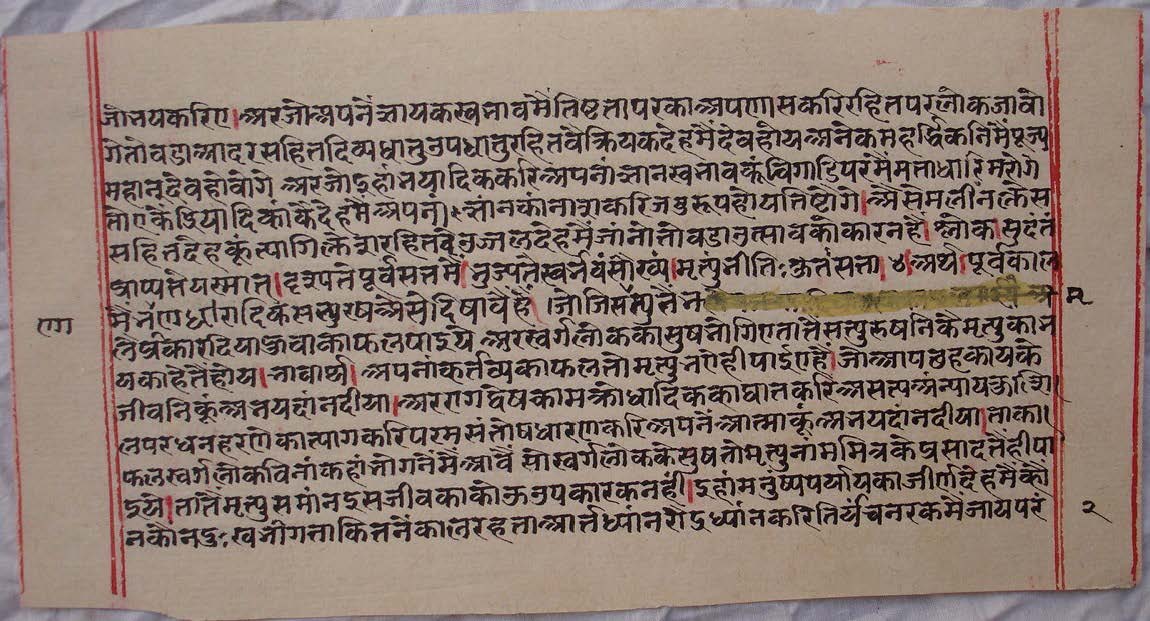 जोभयकरिए।अरजोअपनेंज्ञायकस्वभावमैंतिष्टतापरकाअपणासकरिरहितपरलोकजावो
गेतोवडाआदरसहितदिव्यधातुउपधातुरहितवैक्रियकदेहमैंदेवहोयअनेकमहर्द्धिकनिमैंपूज्य
महानदेवहोवोगे अरजोइहांभयादिककरिअपनांज्ञानस्वभावकूंविगाडिपरमैंममताधारिमरोगे
तोएकेंद्रियादिकांकैदेहमैंअपनांज्ञानकानाशकरिजडरूपहोयतिष्टोगे।अैसेमलीनक्लेस
सहितदेहकूंत्यागिक्लेशरहितउज्जलदेहमैंजानांतोवडाउत्सावकोकारनहै।श्लोक।सुदत्तं
प्राप्यतेयस्मात।दृश्यतेपूर्वसत्तमैः।भुज्यतेस्वर्भवंसौख्यं।मृत्युभीतिःकुतःसतां।४।अर्थ।पूर्वकाल
मैंभएगणधरादिकसत्पुरुषअैसेदिषावैहैं।जोजिसमृत्युतैंभ
लैप्रकारदियाहुवाकाफलपाइये अरस्वर्गलोककोसुषभोगिएतातैंसत्पुरुषनिकैमृत्युकाभ
यकाहेतैंहोय।भावार्थ।अपनांकर्तव्यकाफलतोमृत्युभएहीपाईएहै।जोआपछहकायके
जीवनिकूंअभयदांनदीया।अररागद्वेषकामक्रोधादिककाघातकरिअसत्यअंन्यायकुशी
लपरधनहरणकात्यागकरिपरमसंतोषधारणकरिअपनेंआत्माकूंअभयदांनदीया।ताका
फलस्वर्गलोकविनांकहांभोगनेमैंआवै सोस्वर्गलोककेसुषतोमृत्युनांममित्रकेप्रसादतैंहीपा
इये।तातैंमृत्युसमांनइसजीवकाकोऊउपकारकनहीं।इहांमनुष्यपर्यायकाजीर्णदेहमैंकौ
नकौनदुःखभोगताकितनेंकालरहताआर्त्तध्यांनरौद्रध्यांनकरितिर्यंचनरकमैंजायपरं
२